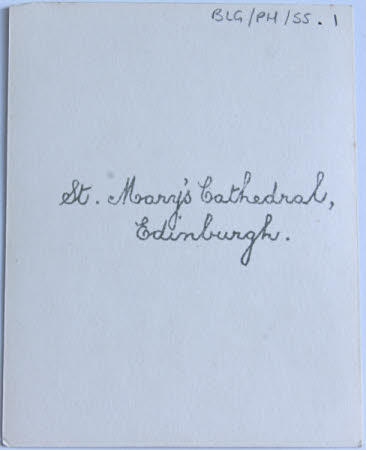 BLG/PH/SS.1
St. Mary's Cathedral,
Edinburgh.